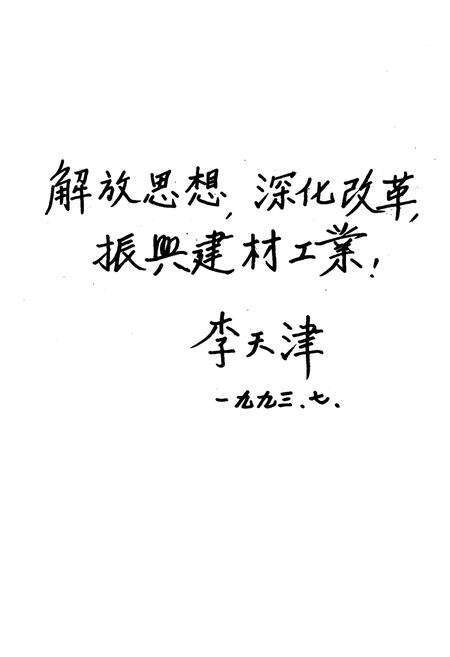 解放思想，深化改革，
振興建材工業！
李天津
一九九三.七.